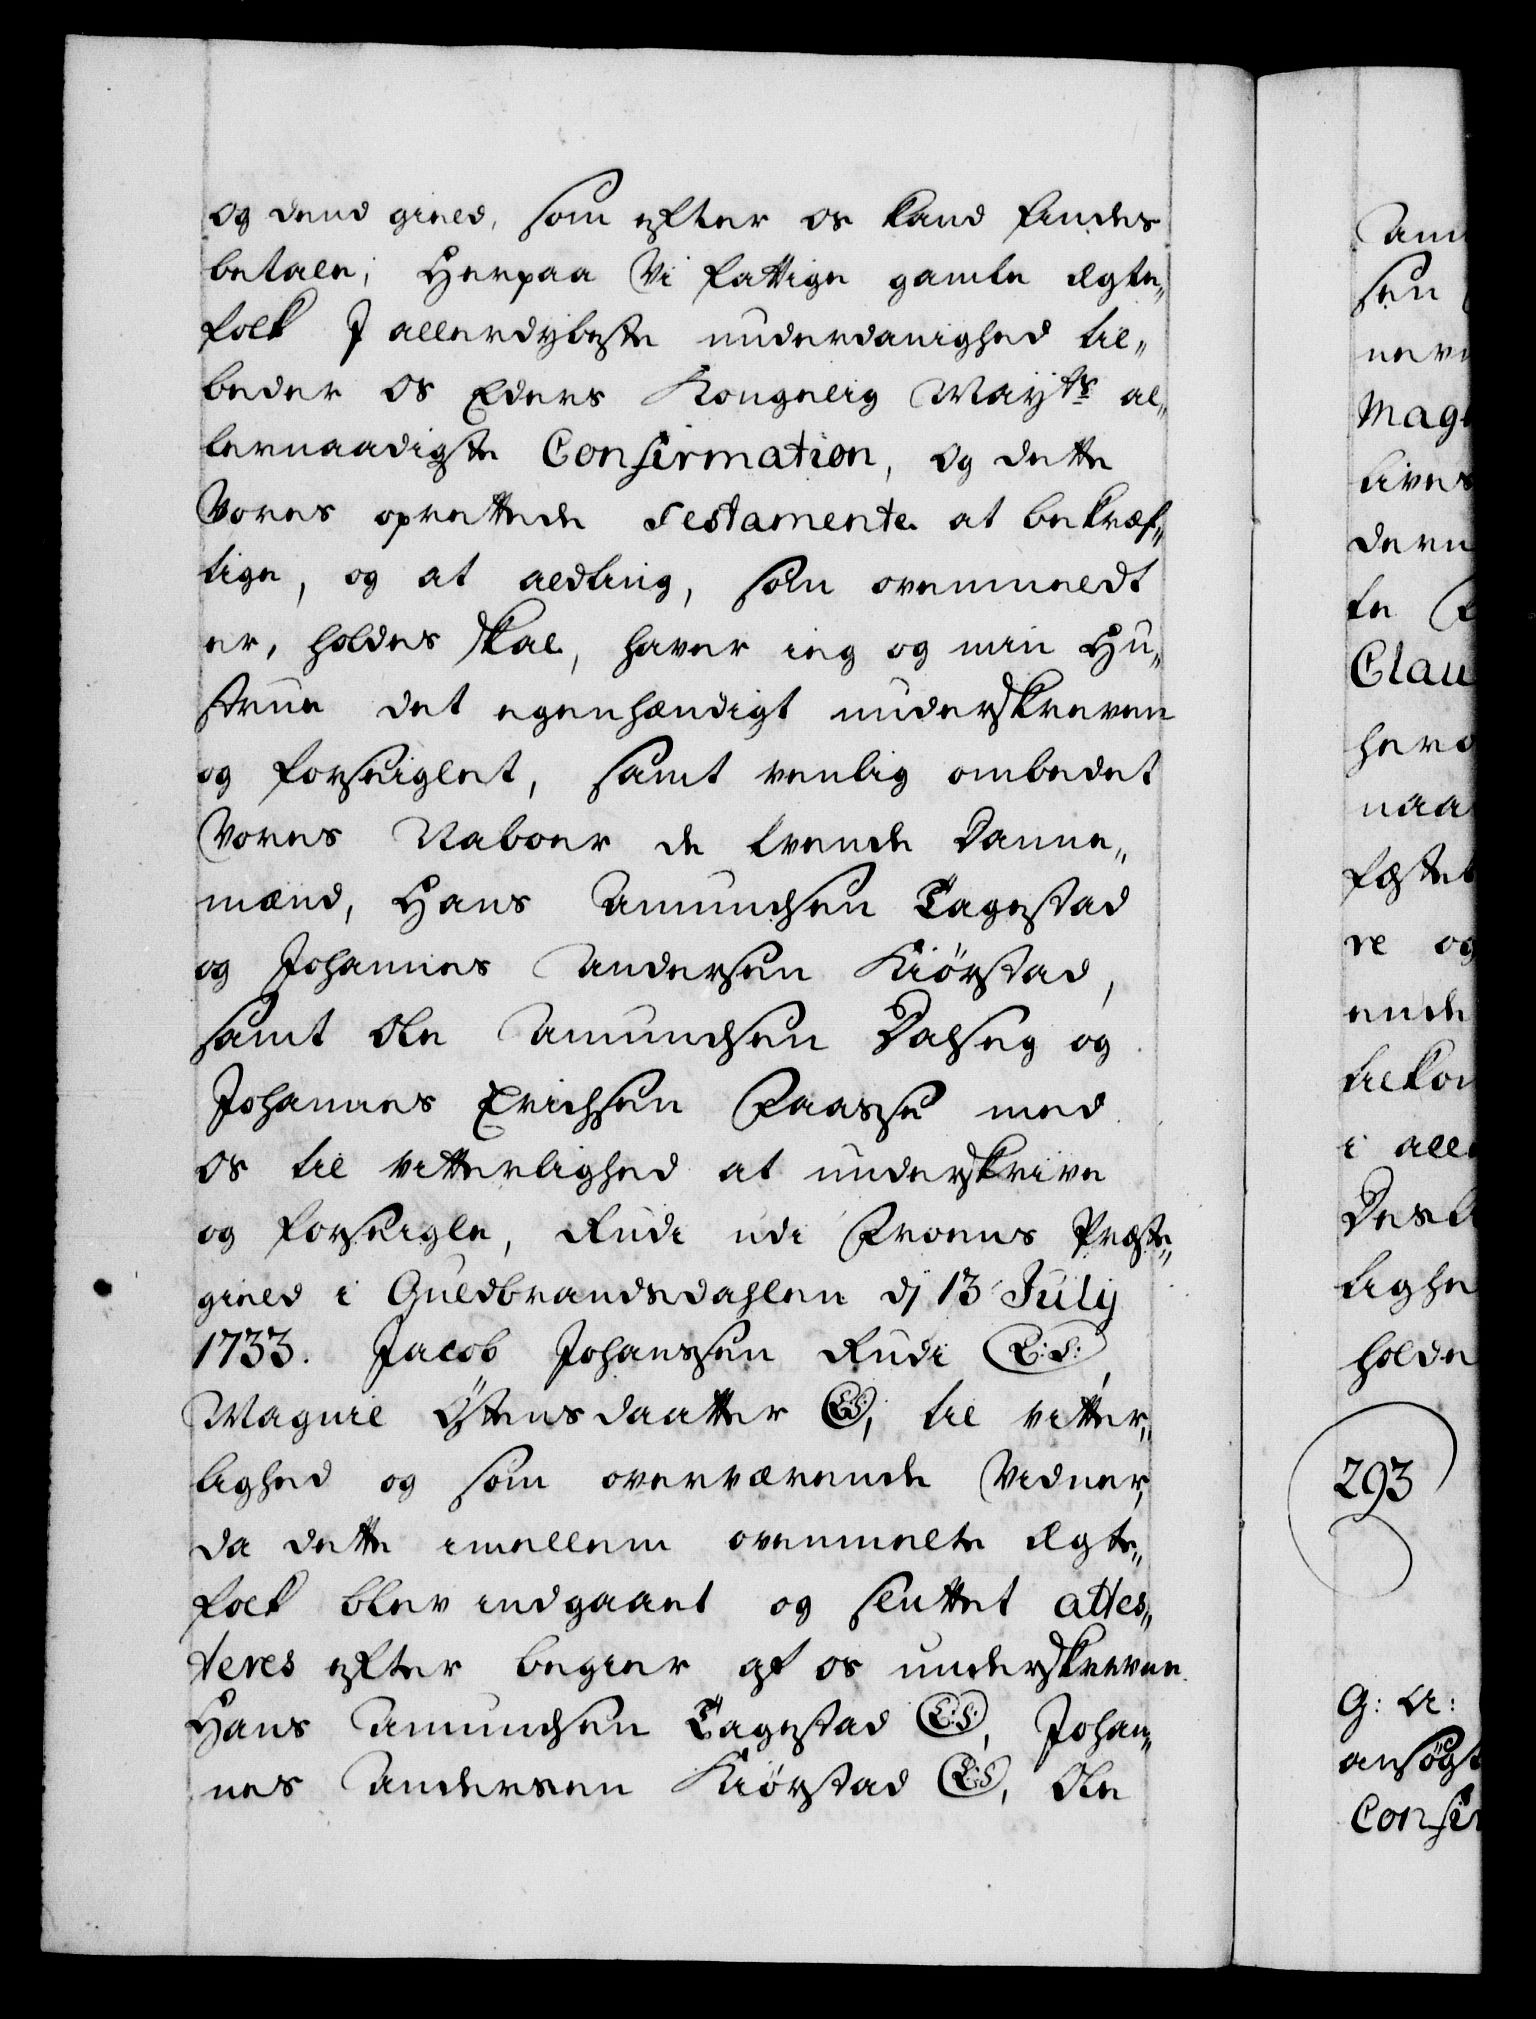 og dend gield, som efter os kand findes
betale; Herpaa Vi fattige gamle Ægte„
folk I allerdybeste underdanighed til„
beder os Eders Kongelig Mayts al„
lernaadigste Confirmation, og dette
Vores oprettede Testamente at bekræf„
tige, og at aldting, som ovenmeldt
er, holdes skal, haver ieg og min Hu„
strue det egenhændigt underskreven
og forseiglet, samt venlig ombedet
Vores Naboer de tvende Danne„
mænd, Hans Amundsen Tagestad
og Johannes Andersen Kiörstad,
samt Ole Amundsen Dalseg og
Johannes Erichsen Faasse med
os til vitterlighed at underskrive
og forseigle, Rudi udi Froens Præste„
gield i Guldbrandsdahlen dj 13 July
1733. Jacob Johansen Rudi L:S:,
Magnil Östensdaatter LS, til vitter„
lighed og som overværende Vidner,
da dette imellem ovenmelte Ægte„
folk blev indgaaet og sluttet attes„
teres efter begier af os underskreven
Hans Amundsen Tagestad L:S:, Johan„
nes Andersen Kiörstad L:S, Ole
sen
Mag
Clau
naa
re og
ende
i all
lighe
holde
293
G: A:
ansögt
Confir